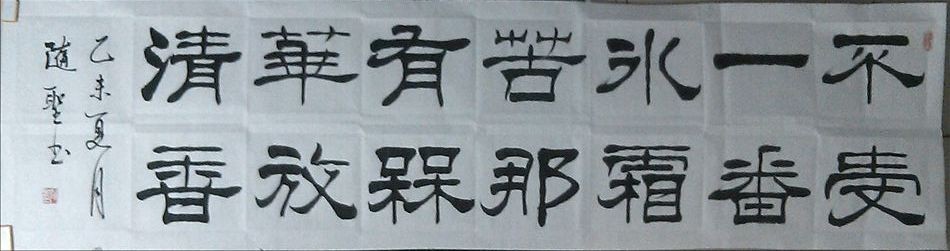 不受
一番
冰霜
苦那
有槑
華放
清香
乙未夏月
隨聖书